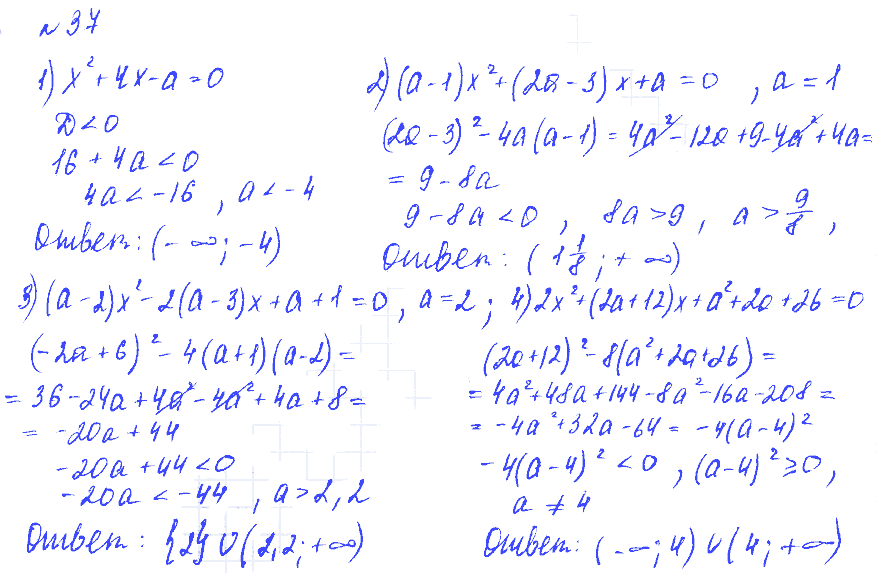 № 37
1) x² + 4x - a = 0
D < 0
16 + 4a < 0
4a < -16 , a < -4
Ответ: (-∞; -4)
2) (a-1)x² + (2a-3)x + a = 0 , a = 1
(2a-3)² - 4a(a-1) = 4a² - 12a + 9 - 4a² + 4a =
= 9 - 8a
9 - 8a < 0 , 8a > 9 , a > 9/8 ,
Ответ: (1 1/8 ; +∞)
3) (a-2)x² - 2(a-3)x + a + 1 = 0 , a = 2 ;
(-2a+6)² - 4(a+1)(a-2) =
= 36 - 24a + 4a² - 4a² + 4a + 8 =
= -20a + 44
-20a + 44 < 0
-20a < -44 , a > 2,2
Ответ: {2} ∪ (2,2; +∞)
4) 2x² + (2a+12)x + a² + 2a + 26 = 0
(2a+12)² - 8(a² + 2a + 26) =
= 4a² + 48a + 144 - 8a² - 16a - 208 =
= -4a² + 32a - 64 = -4(a-4)²
-4(a-4)² < 0 , (a-4)² ≥ 0 ,
a ≠ 4
Ответ: (-∞; 4) ∪ (4; +∞)